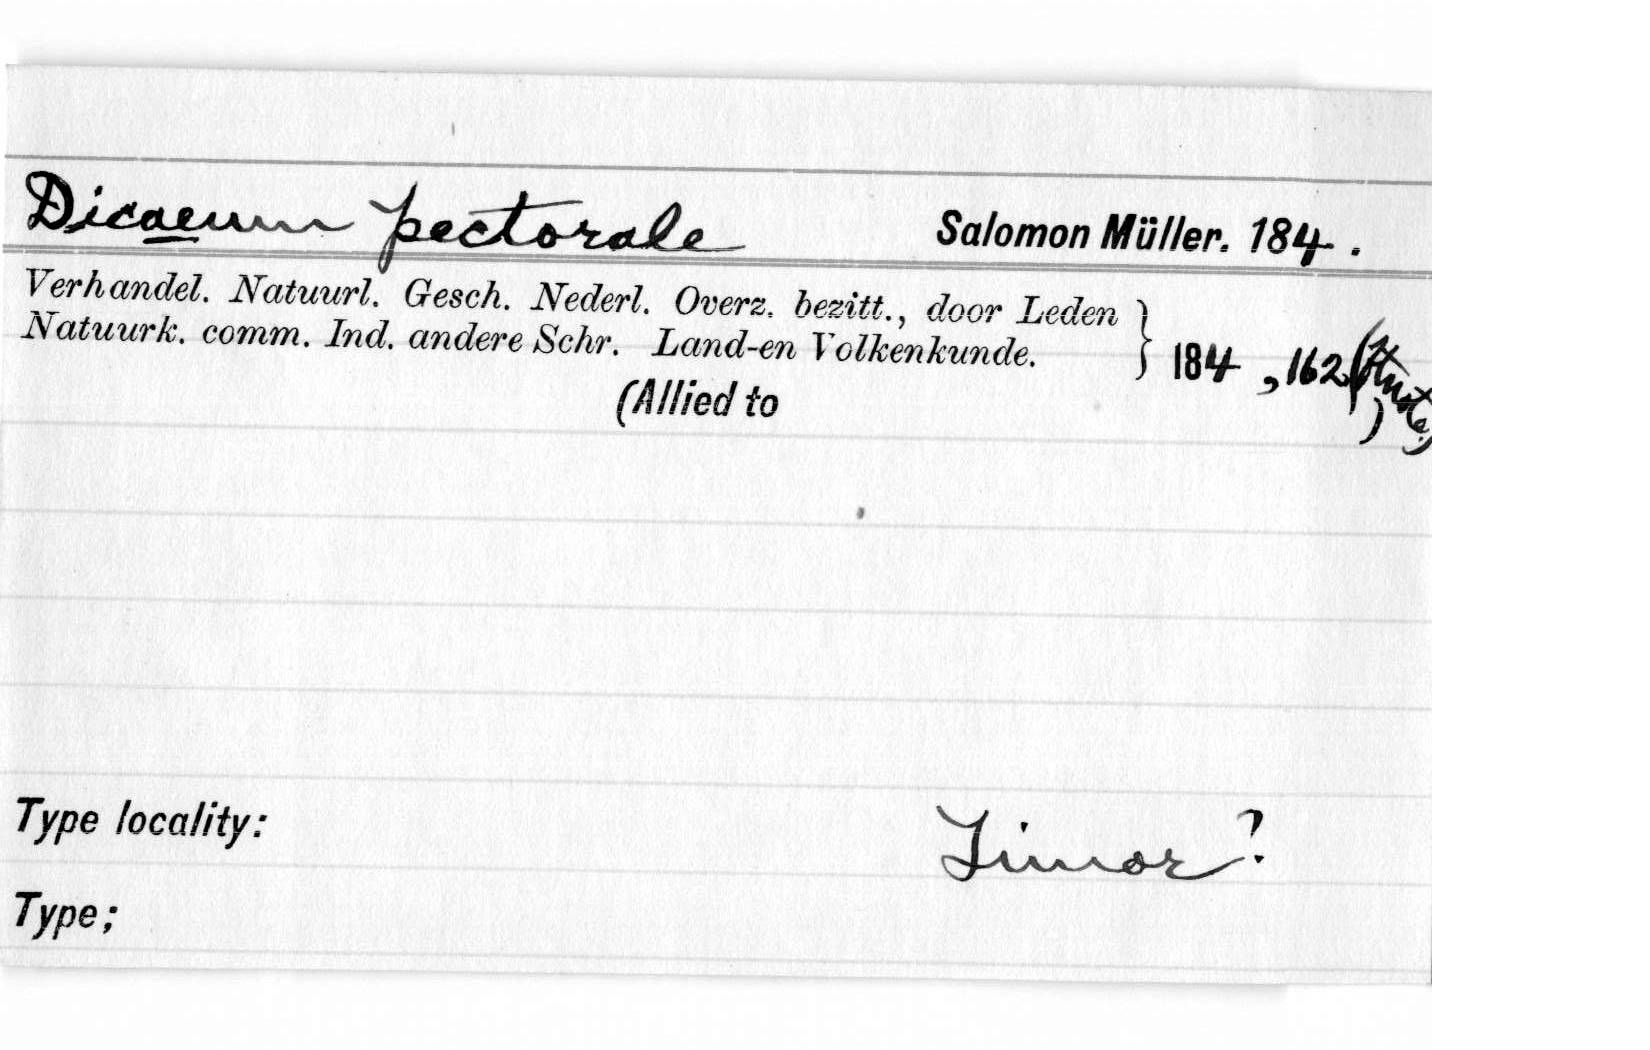 Dicaeum pectorale Salomon Müller. 184 .
Verhandel. Natuurl. Gesch. Nederl. Overz. bezitt., door Leden
Natuurk. comm. Ind. andere Schr. Land-en Volkenkunde. } 184 , 162
(Allied to )
Type locality: Timor?
Type;